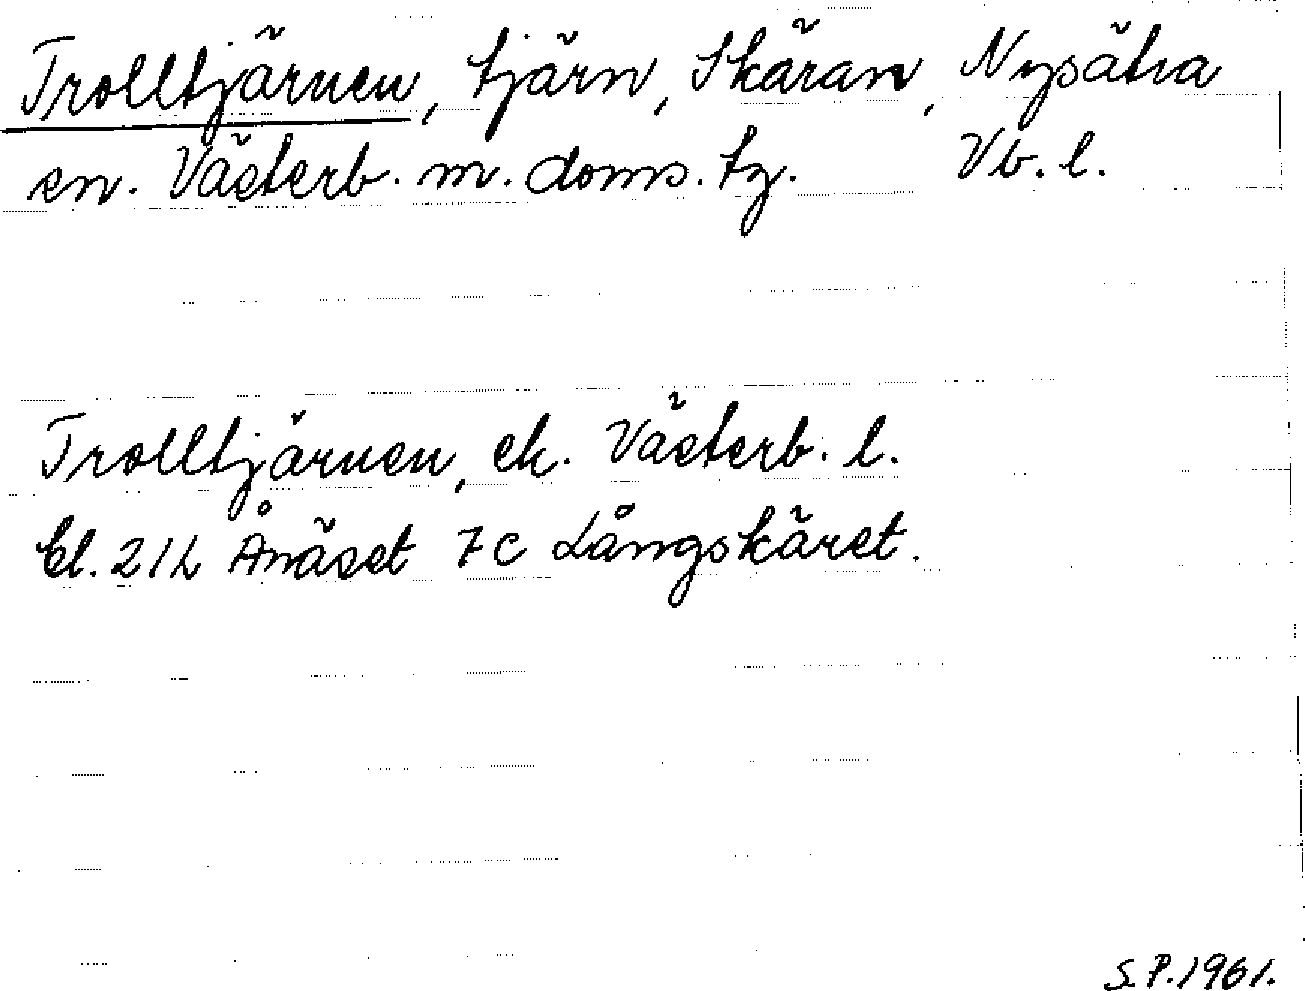 Trolltjärnen, tjärn, Skäran, Nysätra
sn. Västerb. m. doms. tg. Vb. l.
Trolltjärnen, ek. Västerb. l.
bl. 21L Ånäset 7c Långskäret.
S.P.1961.